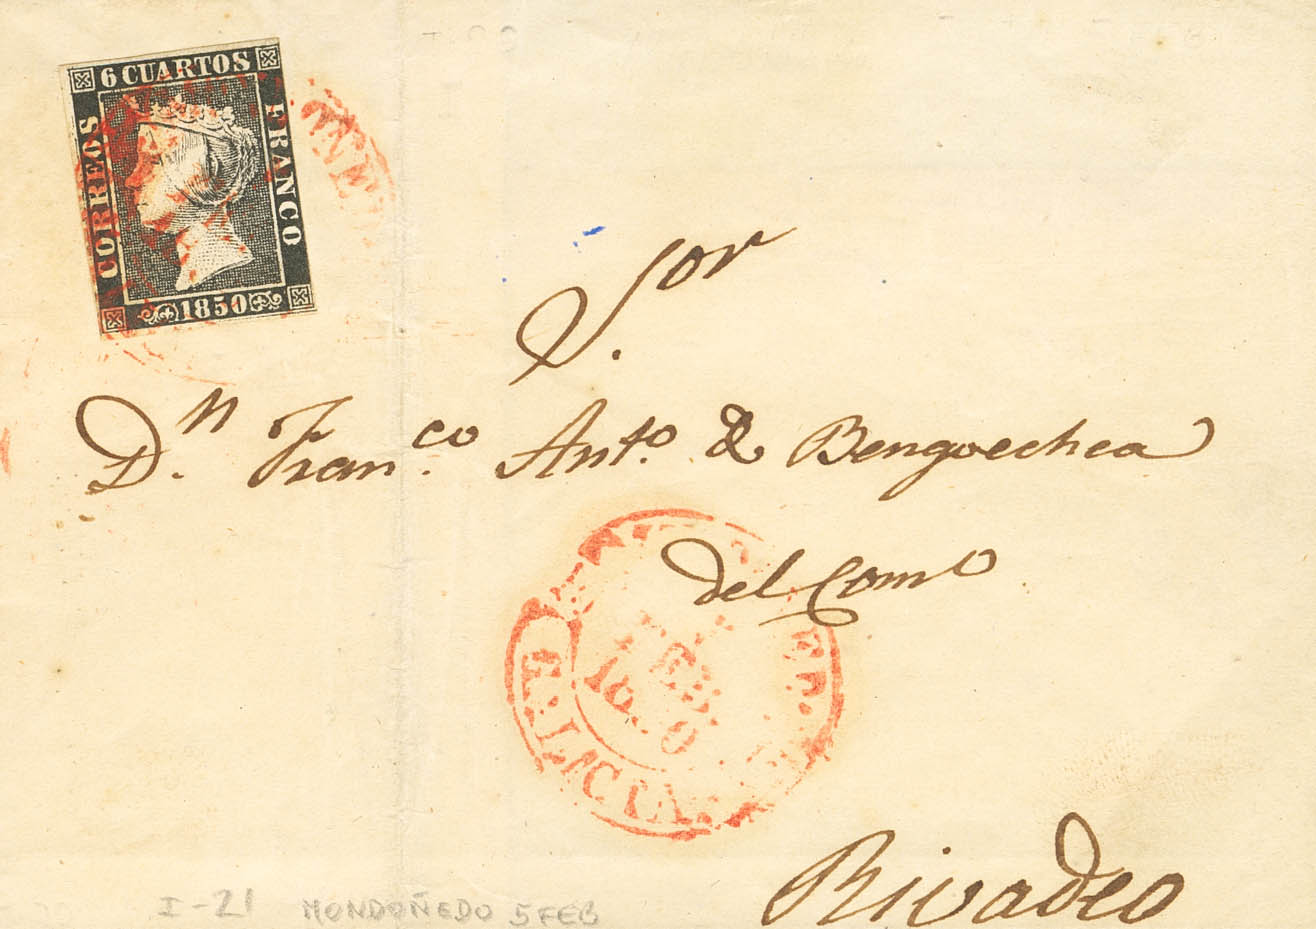 6 CUARTOS
CORREOS
FRANCO
1850
Sor
Dn. Franco. Anto. de Bengoechea
del Como
FEB.
Rivadeo
I-21 MONDOÑEDO 5 FEB